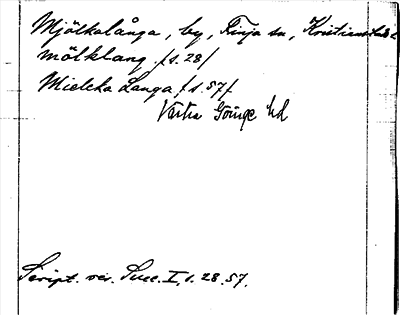 Mjölkalånga, by, Finja sn, Kristianstads l
mölklang. /s. 28/
Mielcka Langa /s. 57/
Västra Göinge hd
Script. rer. Svec. I, s. 28. 57.